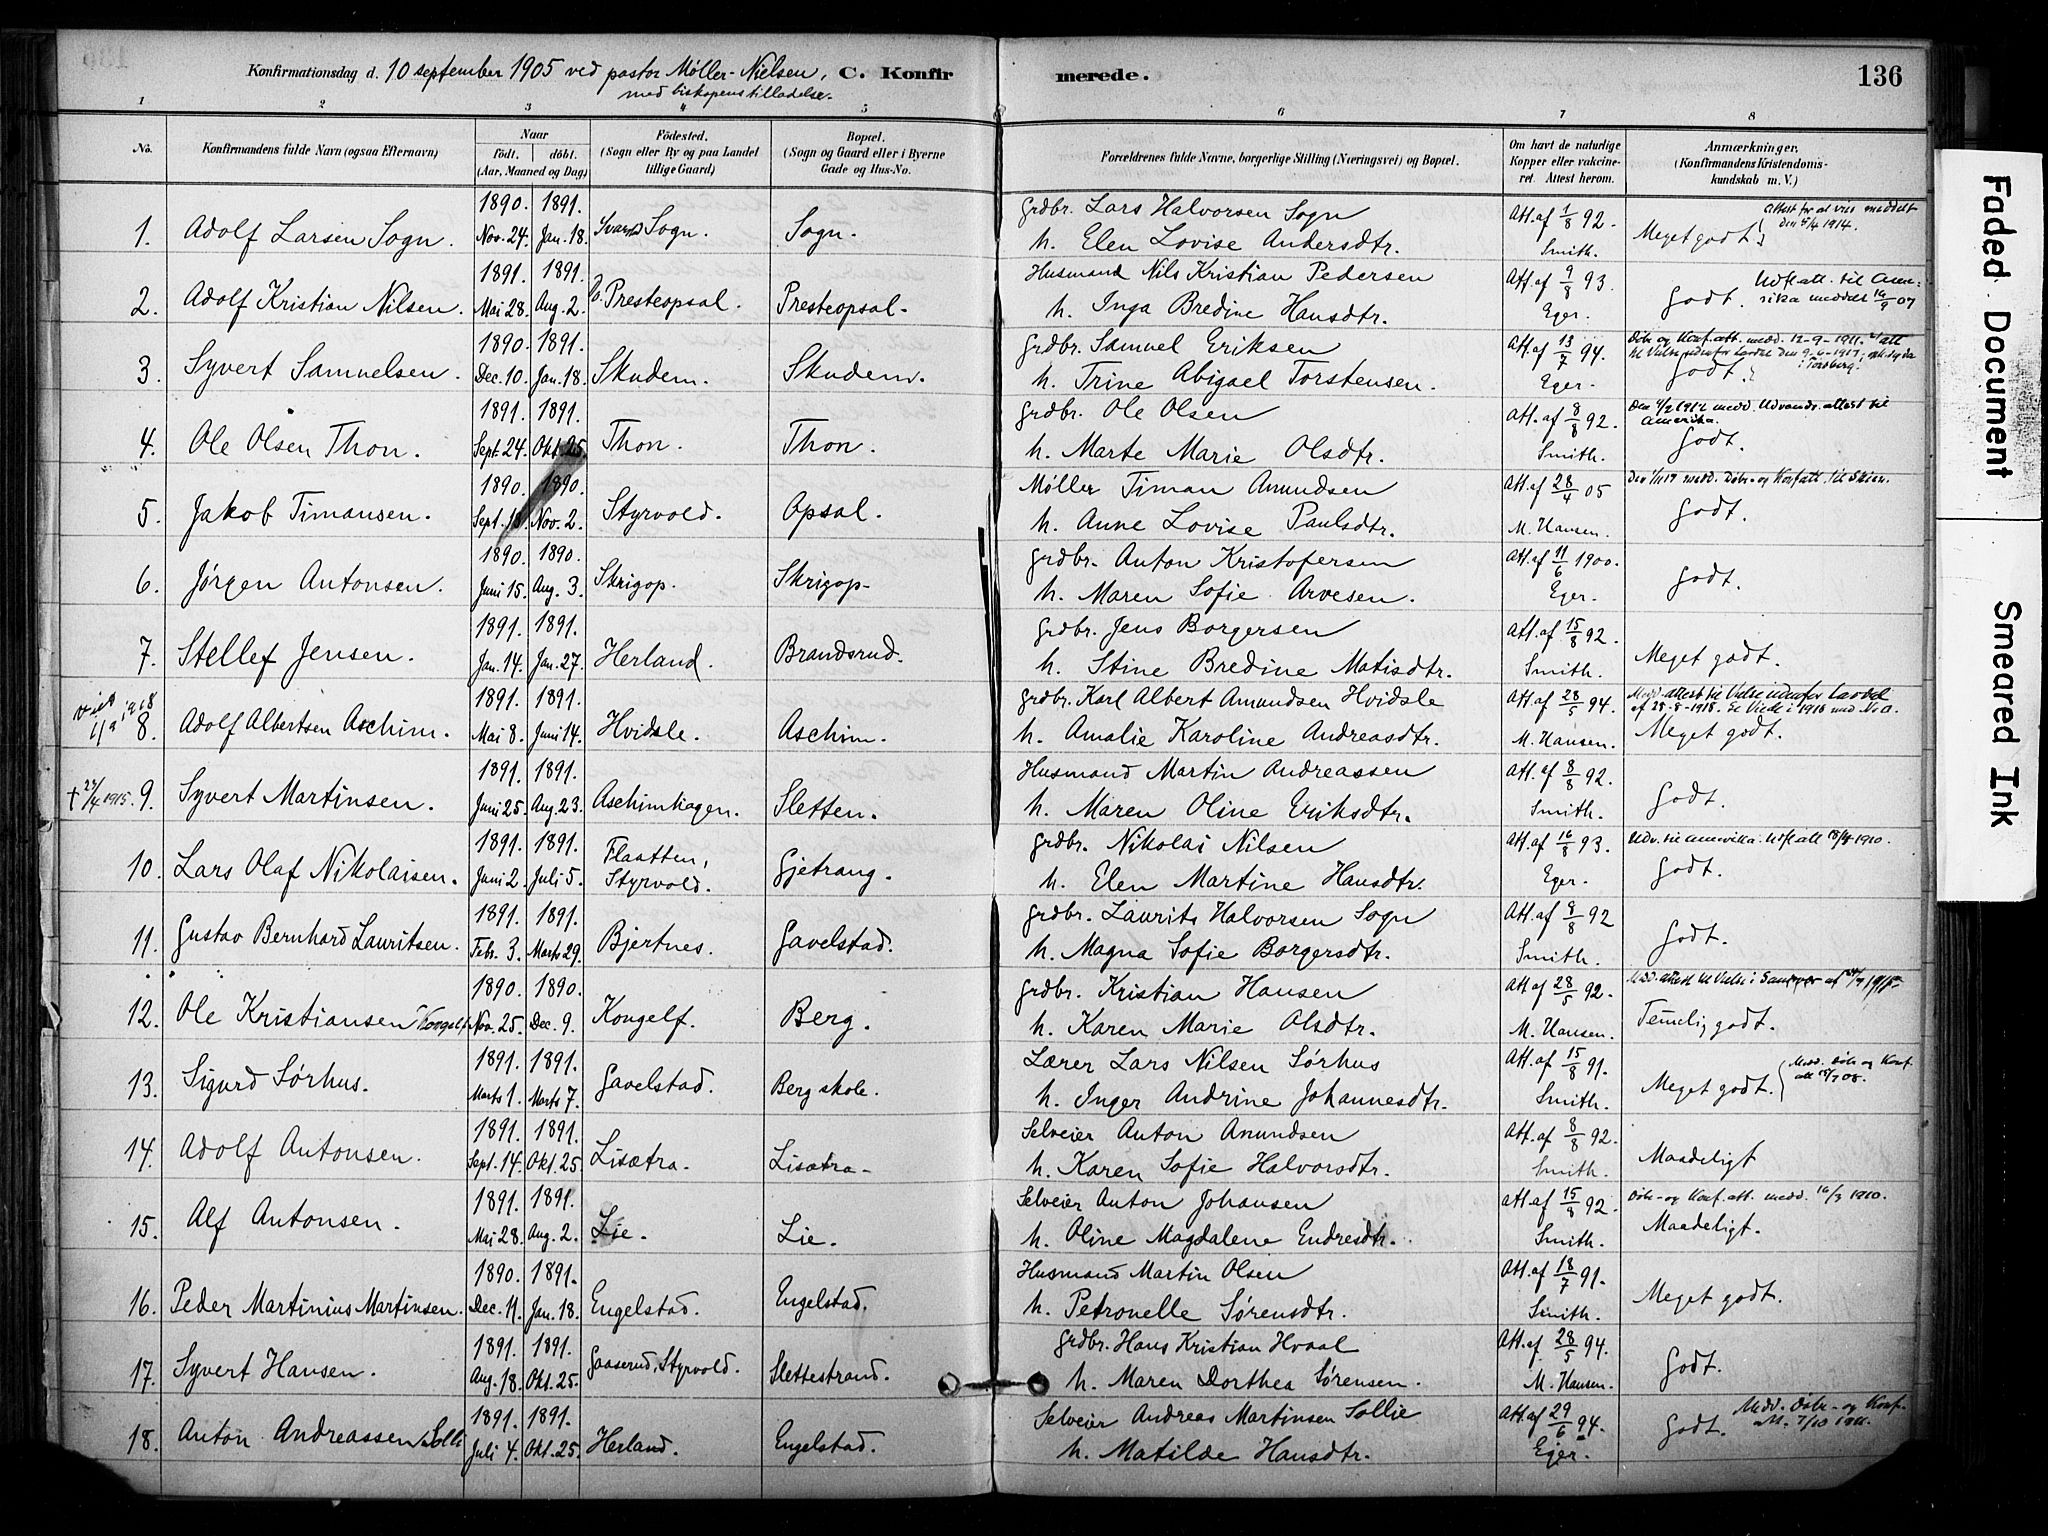 Konfirmationsdag d. 10 september 1905 ved pastor Møller-Nielsen, C. Konfirmerede. 136
med biskopens tilladelse.
1 2 3 4 5 6 7 8
No. Konfirmandens fulde Navn (ogsaa Efternavn) Naar født. døbt. (Aar, Maaned og Dag) Fødested. (Sogn eller By og paa Landet tillige Gaard) Bopæl. (Sogn og Gaard eller i Byerne Gade og Hus-No. Forældrenes fulde Navne, borgerlige Stilling (Næringsvei) og Bopæl. Om havt de naturlige Kopper eller vakcineret. Attest herom. Anmærkninger, (Konfirmandens Kristendomskundskab m. V.)
1890. 1891. Grdbr. Lars Halvorsen Sogn Att. af 1/8 92. Attest for at vies meddelt
1. Adolf Larsen Sogn. Nov. 24. Jan. 18. Sogn. Sogn. h. Elen Lovise Andersdtr. Smith. Meget godt.
1891. 1891. Husmand Nils Kristian Pedersen Att. af 9/8 93. Udfl.att. til Amerika meddelt
2. Adolf Kristian Nilsen. Mai 28. Aug. 2. Presteopsal. Presteopsal. h. Inga Bredine Hansdtr. Eger. Godt.
1890. 1891. Grdbr. Samuel Eriksen Att. af 13/7 94. Døbe og Konf.att. medd. 12-9-1911.
3. Syvert Samuelsen. Dec. 10. Jan. 18. Skudem. Skudem. h. Trine Abigael Torstensen. Eger. Godt.
1891. 1891. Grdbr. Ole Olsen Att. af 8/8 92. medd. Udvandr. attest til Amerika.
4. Ole Olsen Thon. Sept. 24. Okt. 25. Thon. Thon. h. Marte Marie Olsdtr. Smith. Godt.
1890. 1890. Møller Timan Amundsen Att. af 28/4 05 medd. Døbe- og Konf.att. til Skien.
5. Jakob Timansen. Sept. Nov. 2. Styrvold. Opsal. h. Anne Lovise Paulsdtr. M. Hansen. Godt.
1890. 1890. Grdbr. Anton Kristofersen Att. af 11/6 1900.
6. Jørgen Antonsen. Juni 15. Aug. 3. Skrigop. Skrigop. h. Maren Sofie Arvesen. Eger. Godt.
1891. 1891. Grdbr. Jens Borgersen Att. af 15/8 92.
7. Stellef Jensen. Jan. 14. Jan. 27. Herland. Brandsrud. h. Stine Bredine Matisdtr. Smith. Meget godt.
viet 1918 1891. 1891. Grdbr. Karl Albert Amundsen Hvidsle Att. af 28/5 94. Medd. attest til Vielse udenfor Lardal
8. Adolf Albertsen Aschim. Mai 8. Juni 14. Hvidsle. Aschim. h. Amalie Karoline Andreasdtr. M. Hansen. Meget godt.
1891. 1891. Husmand Martin Andreassen Att. af 8/8 92.
† 1915. 9. Syvert Martinsen. Juni 25. Aug. 23. Aschimhagen. Sletten. h. Maren Oline Eriksdtr. Smith. Godt.
1891. 1891. Flaatten, Grdbr. Nikolai Nilsen Att. af 16/8 93. Udv. til Amerika. Udfl.att 1910.
10. Lars Olaf Nikolaisen. Juni 2. Juli 5. Styrvold. Gjetrang. h. Elen Martine Hansdtr. Eger. Godt.
1891. 1891. Grdbr. Laurits Halvorsen Sogn Att. af 8/8 92
11. Gustav Bernhard Lauritsen. Febr. 3. Marts 29. Bjertnes. Gavelstad. h. Magna Sofie Borgersdtr. Smith. Godt.
1890. 1890. Grdbr. Kristian Hansen Att af 28/5 92. Medd. attest til Vielse i
12. Ole Kristiansen Kongelf Nov. 25. Dec. 9. Kongelf. Berg. h. Karen Marie Olsdtr. M. Hansen. Temelig godt.
1891. 1891. Lærer Lars Nilsen Sørhus Att. af 15/8 91. Medd. Døbe og Konf.
13. Sigurd Sørhus. Marts 1. Marts 7. Gavelstad. Berg skole. h. Inger Andrine Johannesdtr. Smith. Meget godt.
1891. 1891. Selveier Anton Amundsen Att. af 8/8 92.
14. Adolf Antonsen. Sept. 14. Okt. 25. Lisætra. Lisætra. h. Karen Sofie Halvorsdtr. Smith. Maadeligt
1891. 1891. Selveier Anton Johansen Att. af 15/8 92. Døbe- og Konf. att. medd. 16/3 1910.
15. Alf Antonsen. Mai 28. Aug. 2. Lie. Lie. h. Oline Magdalene Endresdtr. Smith. Maadeligt.
1890. 1891. Husmand Martin Olsen Att. af 18/7 91.
16. Peder Martinius Martinsen. Dec. 11. Jan. 18. Engelstad. Engelstad. h. Petronelle Sørensdtr. Smith. Meget godt.
1891. 1891. Grdbr. Hans Kristian Hvaal Att. af 28/5 94.
17. Syvert Hansen. Aug. 18. Okt. 25. Gaaserud, Styrvold. Slettestrand. h. Maren Dorthea Sørensen. M. Hansen. Godt.
1891. 1891. Selveier Andreas Martinsen Sollie Att. af 29/6 94. Medd. Døbe- og Konf. att. 7/10 1911.
18. Anton Andreassen Solli Juli 4. Okt. 25. Herland. Engelstad. h. Matilde Hansdtr. Eger. Godt.
Faded Document
Smeared Ink